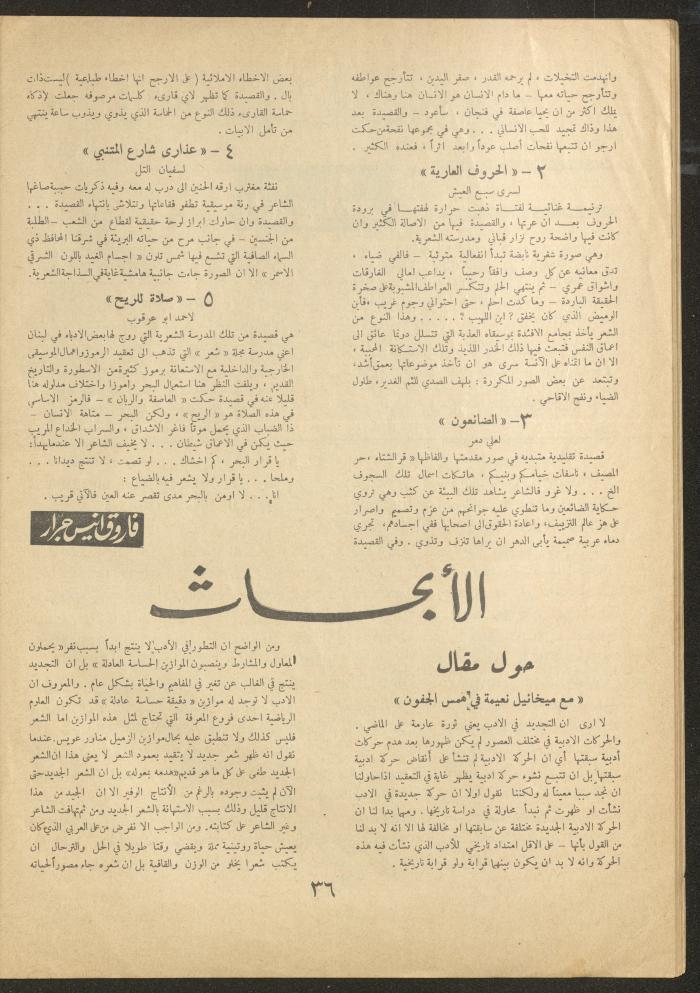 وانهدمت التخيلات ، لم يرحمه القدر ، صفر اليدين ، تتأرجح عواطفه
وتتأرجح حياته معها – ما دام الانسان هو الانسان هنا وهناك ، لا
يملك اكثر من ان يحيا عاصفة في فنجان ، سأعود – والقصيدة بعد
هذا وذاك تمجيد للحب الانساني . . . وهي في مجموعها نفحة من حكت
ارجو ان تتبعها نفحات أصلب عوداً وابعد اثراً ، فعنده الكثير .
٢ – « الحروف العارية »
لسرى سبع العيش
ترنيمة غنائية لفتاة ذهبت حرارة لهفتها في برودة
الحروف بعد ان عرتها ، والقصيدة فيها من الاصالة الكثير وان
كانت فيها واضحة روح نزار قباني ومدرسته الشعرية.
وهي صورة شعرية نابضة تبدأ انفعالية متوثبة – فالفي ضياء ،
تدق معانيه عن كل وصف وافقاً رحيباً ، يداعب امالي الفارقات
واشواق عمري – ثم ينتهي الحلم وتتكسر العواطف المشبوبة على صخرة
الحقيقة الباردة – وما كدت احلم ، حتى احتواني وجوم غريب ، فأين
الوميض الذي كان يخفق ? اين اللهيب ? . . . . . وهذا النوع من
الشعر يأخذ بمجامع الافئدة بموسيقاه العذبة التي تتسلل دونما عائق الى
اعماق النفس فتبعث فيها ذلك الخدر اللذيذ وتلك الاستكانة المحببة ،
الا ان ما اتمناه على الآنسة سرى هو ان تأخذ موضوعاتها بعمق أشد،
وتبتعد عن بعض الصور المكررة : بلهف الصدي للثم الغدير، طلول
الضياء ونفح الاقاحي .
٣– « الضائعون »
لعلي دهر
قصيدة تقليدية متبدية في صور مقدمتها والفاظها « قر الشتاء ، حر
المصيف ، ناسفات خيامكم وبنيكم ، هاتكات اسمال تلك السجوف
الخ . . . ولا غرو فالشاعر يشاهد تلك البيئة عن كثب وهي تروي
حكاية الضائعين وما تنطوي عليه جوانحهم من عزم وتصميم واصرار
على هز عالم التزييف، واعادة الحقوق الى اصحابها ففي اجسادهم، تجري
دماء عربية صميمة يأبى الدهر ان يراها تنزف وتذوي . وفي القصيدة
بعض الاخطاء الاملائية ( على الارجح انها اخطاء طباعية ) ليست ذات
بال . والقصيدة كما تظهر لاي قارىء كلمات مرصوفه جعلت لاذكاء
حماسة القارىء ذلك النوع من الحماسة الذي يذوي ويذوب ساعة ينتهي
من تأمل الابيات .
٤ – « عذارى شارع المتنبي »
لسفيان التل
نفثة مغترب ارقه الحنين الى درب له معه وفيه ذكريات حبيبة صاغها
الشاعر في رنة موسيقية تطفو فقاعاتها وتتلاشى بانتهاء القصيدة . . .
والقصيدة وان حاولت ابراز لوحة حقيقية لقطاع من الشعب – الطلبة
من الجنسين – في جانب مرح من حياته البريئة في شرقنا المحافظ ذي
السماء الصافية التي تشع فيها شمس تلون « اجسام الغيد باللون الشرقي
الاسمر » الا ان الصورة جاءت جانبية هامشية غاية في السذاجة الشعرية.
٥ – « صلاة للريح »
لاحمد ابو عرقوب
هي قصيدة من تلك المدرسة الشعرية التي روج لها بعض الادباء في لبنان
اعني مدرسة مجلة « شعر » التي تذهب الى تعقيد الرموز واهمال الموسيقى
الخارجية والداخلية مع الاستعانة برموز كثيرة من الاسطورة والتاريخ
القديم ، ويلفت النظر هنا استعمال البحر رامزا واختلاف مدلوله هنا
قليلا عنه في قصيدة حكت « العاصفة والربان » – فالرمز الاساسي
في هذه الصلاة هو « الريح » ، ولكن البحر – متاهة الانسان –
ذا الضباب الذي يحمل موتاً فاغر الاشداق ، والسراب الخداع المريب
حيث يكمن في الاعماق شيطان . . . لا يخيف الشاعر الا عندما يهدأ:
يا قرار البحر ، كم اخشاك . . . لو تصمت ، لا تنتج ديدانا . . .
وملحا . . . يا قرار ولا يشعر فيه بالضياع :
انا . . . لا اومن بالبحر مدى تقصر عنه العين فالآتي قريب .
فاروق انيس جرار
الأبحاث
حول مقال
« مع ميخائيل نعيمة في همس الجفون »
لا ارى ان التجديد في الادب يعني ثورة عارمة على الماضي .
والحركات الادبية في مختلف العصور لم يكن ظهورها بعد هدم حركات
أدبية سبقتها أي ان الحركة الادبية لم تنشأ على أنقاض حركة ادبية
سبقتها بل ان تتبع نشوء حركة ادبية يظهر غاية في التعقيد اذا حاولنا
ان نجد سببا معيناً له ولكننا نقول اولا ان حركة جديدة في الادب
نشأت او ظهرت ثم نبدأ محاولة في دراسة تاريخها . ومهما بدا لنا ان
الحركة الادبية الجديدة مختلفة عن سابقتها او مخالفة لها الا انه لا بد لنا
من القول بأنها – على الاقل امتداد تاريخي للأدب الذي نشأت فيه هذه
الحركة وانه لا بد ان يكون بينهما قرابة ولو قرابة تاريخية .
ومن الواضح ان التطور في الأدب لا ينتج ابداً بسبب نفر « يحملون
المعاول والمشارط وينصبون الموازين الحساسة العادلة » بل ان التجديد
ينتج في الغالب عن تغير في المفاهيم والحياة بشكل عام . والمعروف ان
الادب لا توجد له موازين « دقيقة حساسة عادلة » قد تكون العلوم
الرياضية احدى فروع المعرفة التي تحتاج لمثل هذه الموازين اما الشعر
فليس كذلك ولا تنطبق عليه بحال موازين الزميل مناور عويس. عندما
نقول انه ظهر شعر جديد لا يتقيد بعمود الشعر لا يعني هذا ان الشعر
الجديد طغى على كل ما هو قديم « هدمه بمعوله » بل ان الشعر الجديد حتى
الآن لم يثبت وجوده بالرغم من الأنتاج الوفير الا ان الجيد من هذا
الانتاج قليل وذلك بسبب الاستهانة بالشعر الجديد ومن ثم تهافت الشاعر
وغير الشاعر على كتابته. ومن الواجب الا نفرض من على العربي الذي كان
يعيش حياة روتينية مملة ويقضي وقتا طويلا في الحل والترحال ان
يكتب شعرا يخلو من الوزن والقافية بل ان شعره جاء مصوراً لحياته
٣٦